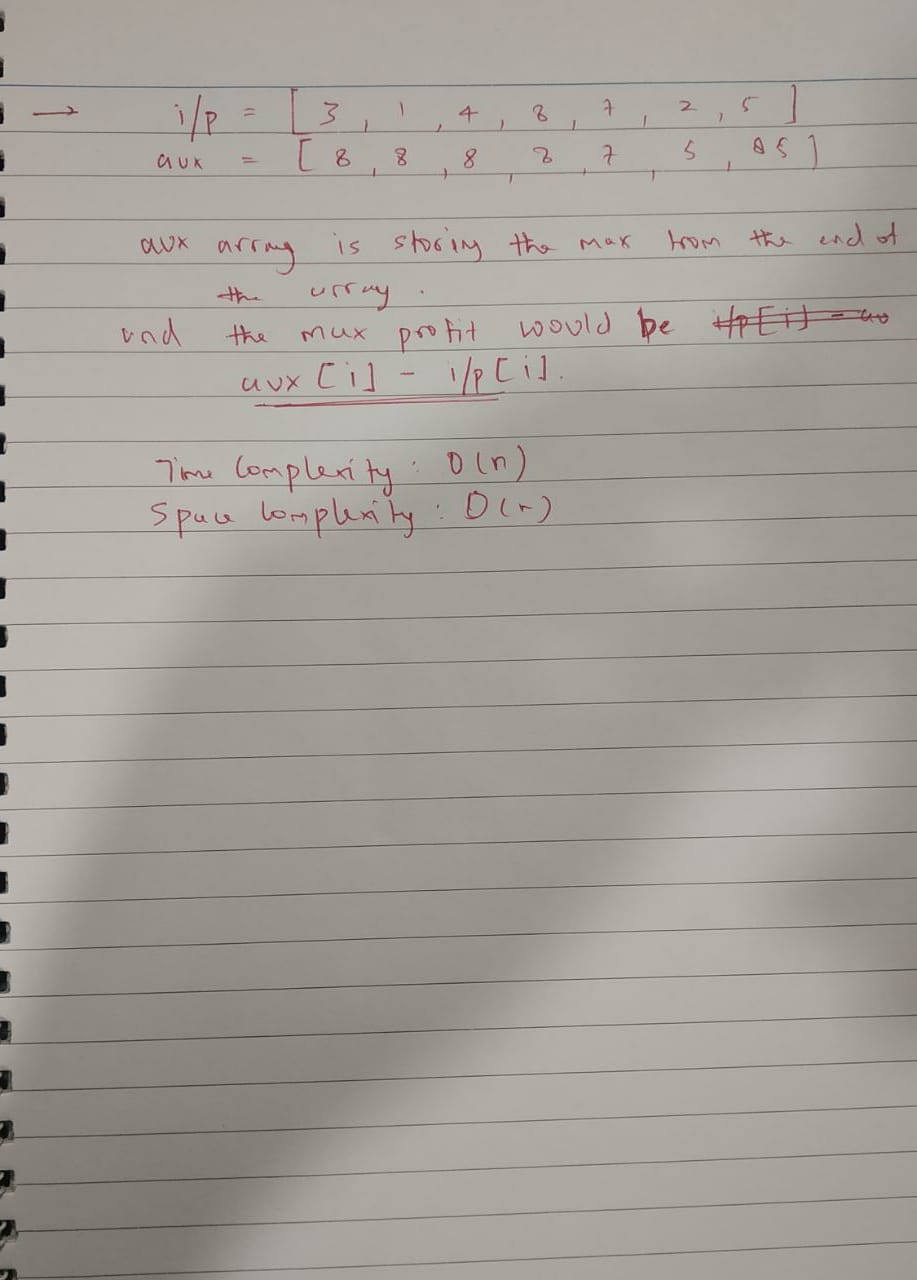 → i/p = [ 3 , 1 , 4 , 8 , 7 , 2 , 5 ]
aux = [ 8 , 8 , 8 , 8 , 7 , 5 , 5 ]
aux array is storing the max from the end of
the array .
and the max profit would be
aux [i] - i/p [i].
Time Complexity : O(n)
Space Complexity : O(n)